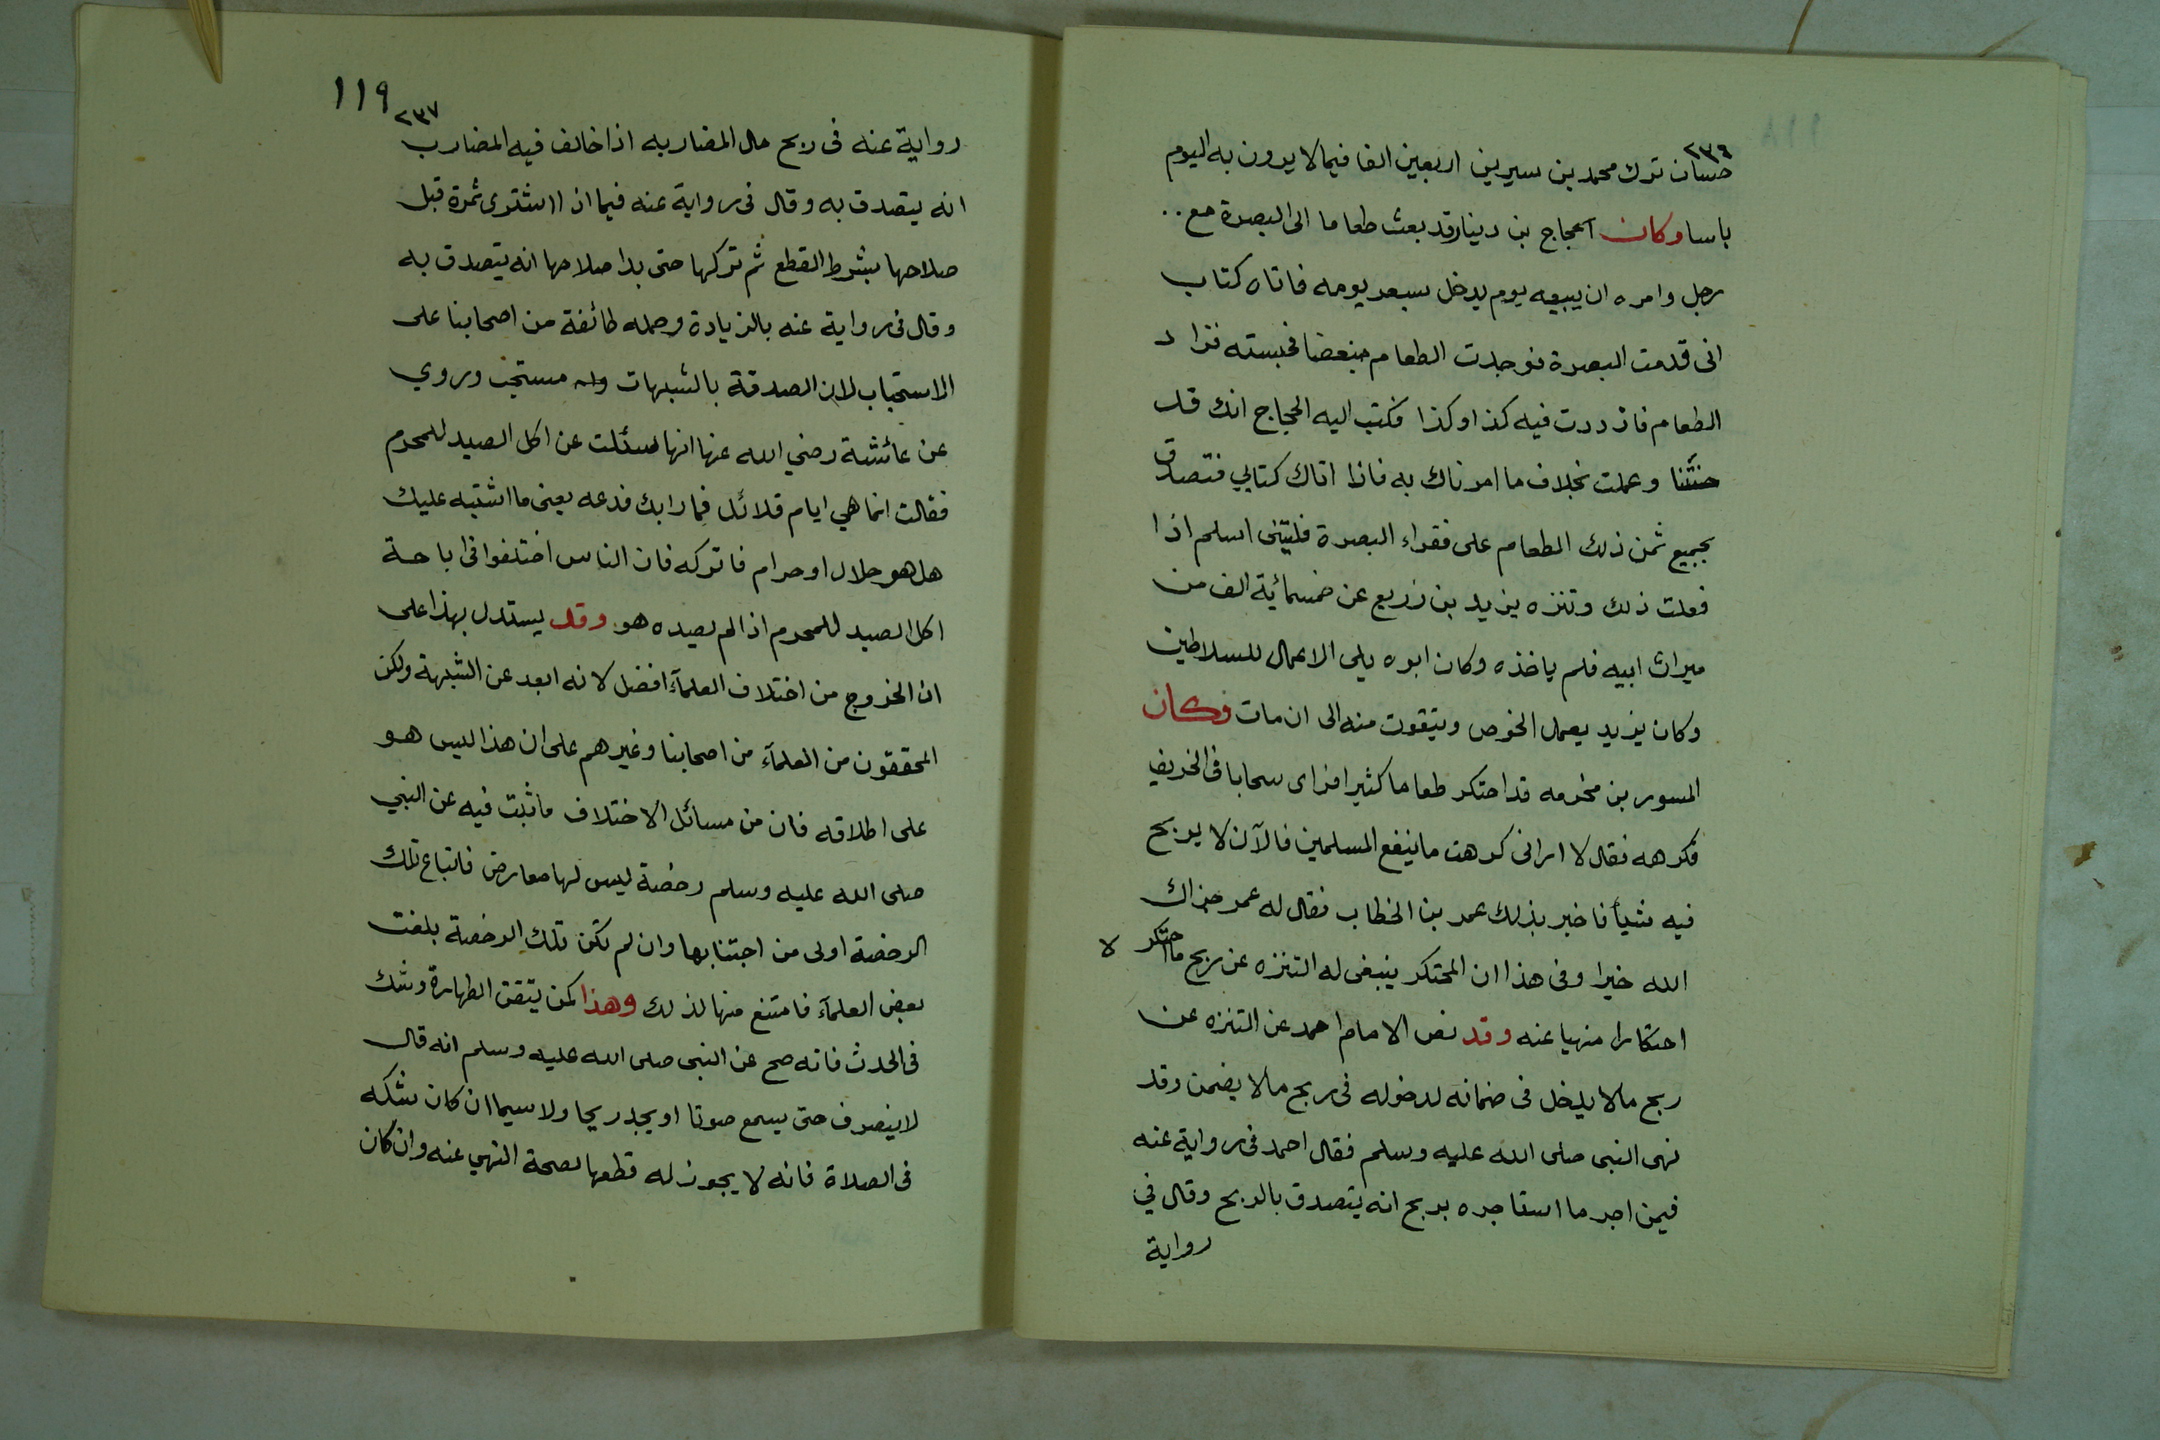 ٢٣٦
حسان ترك محمد بن سيرين اربعين الفا فيما لا يرون به اليوم
باسا وكان الحجاج بن دينار قد بعث طعاما الى البصرة مع ..
رجل وامره ان يبيعه يوم يدخل بسعر يومه فاتاه كتاب
انى قدمت البصرة فوجدت الطعام مبغضا فحبسته فزاد
الطعام فازددت فيه كذا وكذا فكتب اليه الحجاج انك قد
خنتنا وعملت بخلاف ما امرناك به فاذا اتاك كتابي فتصدق
بجميع ثمن ذلك الطعام على فقراء البصرة فليتنى اسلم اذا
فعلت ذلك وتنزه يزيد بن زريع عن خمسمائية الف من
ميراث ابيه فلم ياخذه وكان ابوه يلى الاعمال للسلاطين
وكان يزيد يعمل الخوص ويتقوت منه الى ان مات وكان
المسور بن مخرمه قد احتكر طعاما كثيرا فراى سحابا فى الخريف
فكرهه فقال الا ارانى كرهت ما ينفع المسلمين فالآن لا يربح
فيه شيأ فاخبر بذلك عمر بن الخطاب فقال له عمر جزاك
الله خيرا وفى هذا ان المحتكر ينبغى له التنزه عن ربح ما احتكر لا
احتكارا منهيا عنه وقد نص الامام احمد عن التنزه عن
ربح مالا يدخل فى ضمانه لدخوله فى ربح مالا يضمن وقد
نهى النبى صلى الله عليه وسلم فقال احمد فى رواية عنه
فيمن اجر ما استاجره بربح انه يتصدق بالربح وقال في
رواية
١١٩
٢٣٧
رواية عنه فى ربح مال المضاربه اذا خالف فيه المضارب
انه يتصدق به وقال فى رواية عنه فيما اذا اشترى ثمرة قبل
صلاحها بشرط القطع ثم تركها حتى بدا صلاحها انه يتصدق به
وقال فى رواية عنه بالزيادة وحمله طائفة من اصحابنا على
الاستحباب لان الصدقة بالشبهات مستحب وروي
عن عائشة رضي الله عنها انها سئلت عن اكل الصيد للمحرم
فقالت انما هي ايام قلائل فما رابك فدعه يعنى ما اشتبه عليك
هل هو حلال او حرام فاتركه فان الناس اختلفوا فى اباحة
اكل الصيد للمحرم اذا لم يصيده هو وقد يستدل بهذا على
ان الخروج من اختلاف العلمآء افضل لانه ابعد عن الشبهة ولكن
المحققون من العلمآء من اصحابنا وغيرهم على ان هذا ليس هو
على اطلاقه فان من مسائل الاختلاف ما ثبت فيه عن النبي
صلى الله عليه وسلم رخصة ليس لها معارض فاتباع تلك
الرخصة اولى من اجتنابها وان لم تكن تلك الرخصة بلغت
بعض العلمآء فامتنع منها لذلك وهذا كمن يتقن الطهارة وشك
فى الحدث فانه صح عن النبى صلى الله عليه وسلم انه قال
لا ينصرف حتى يسمع صوتا او يجد ريحا ولا سيما ان كان شكه
فى الصلاة فانه لا يجوز له قطعها لصحة النهي عنه وان كان